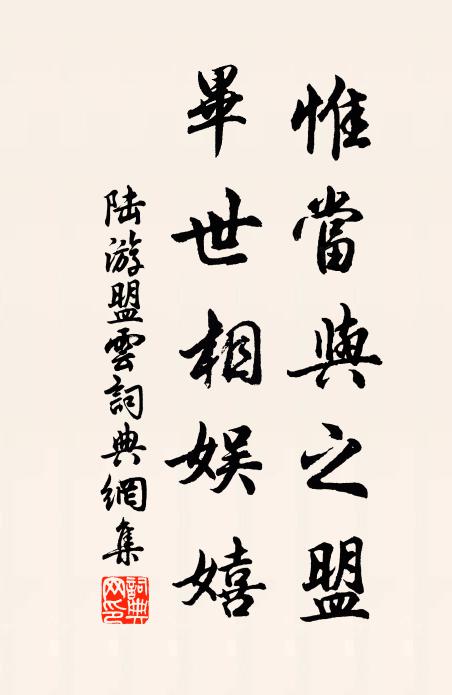 惟當與之盟
畢世相娛嬉
陸游盟雲詞典網集
詞典網印